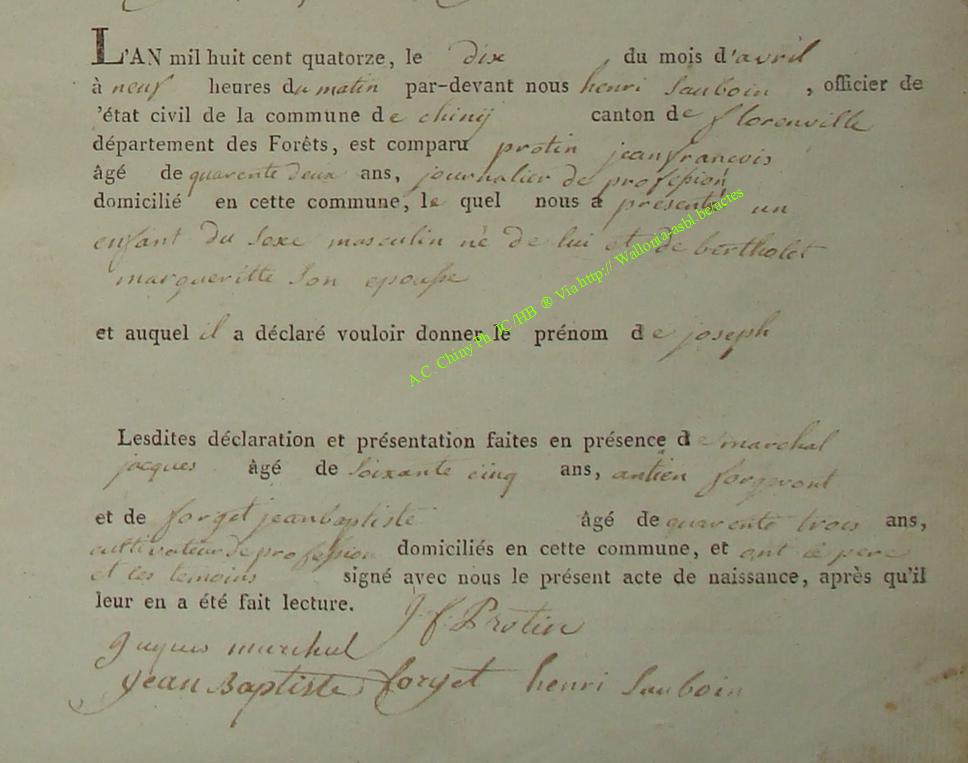 L'AN mil huit cent quatorze, le dix , du mois d'avril
à neuf heures du matin par-devant nous henri Sauboin , officier de
'état civil de la commune de chinÿ canton de florenville
département des Forêts, est comparu protin jeanfrancois
âgé de quarente deux ans, journalier de profession
domicilié en cette commune, le quel nous a présenté un
enfant du sexe masculin né de lui et de bertholet
margueritte son epousse
et auquel il a déclaré vouloir donner le prénom de joseph
Lesdites déclaration et présentation faites en présence de marchal
jacques âgé de soixante cinq ans, antien forgeront
et de forget jeanbaptiste âgé de quarente trois ans,
cultivateur de profession domiciliés en cette commune, et ont le pere
et les temoins signé avec nous le présent acte de naissance, après qu'il
leur en a été fait lecture.
J f Protin
marchal
jean Baptiste forget henri Sauboin
A.C. Chiny Ph. JC /HB ® Via http:// Wallonia-asbl.be/actes